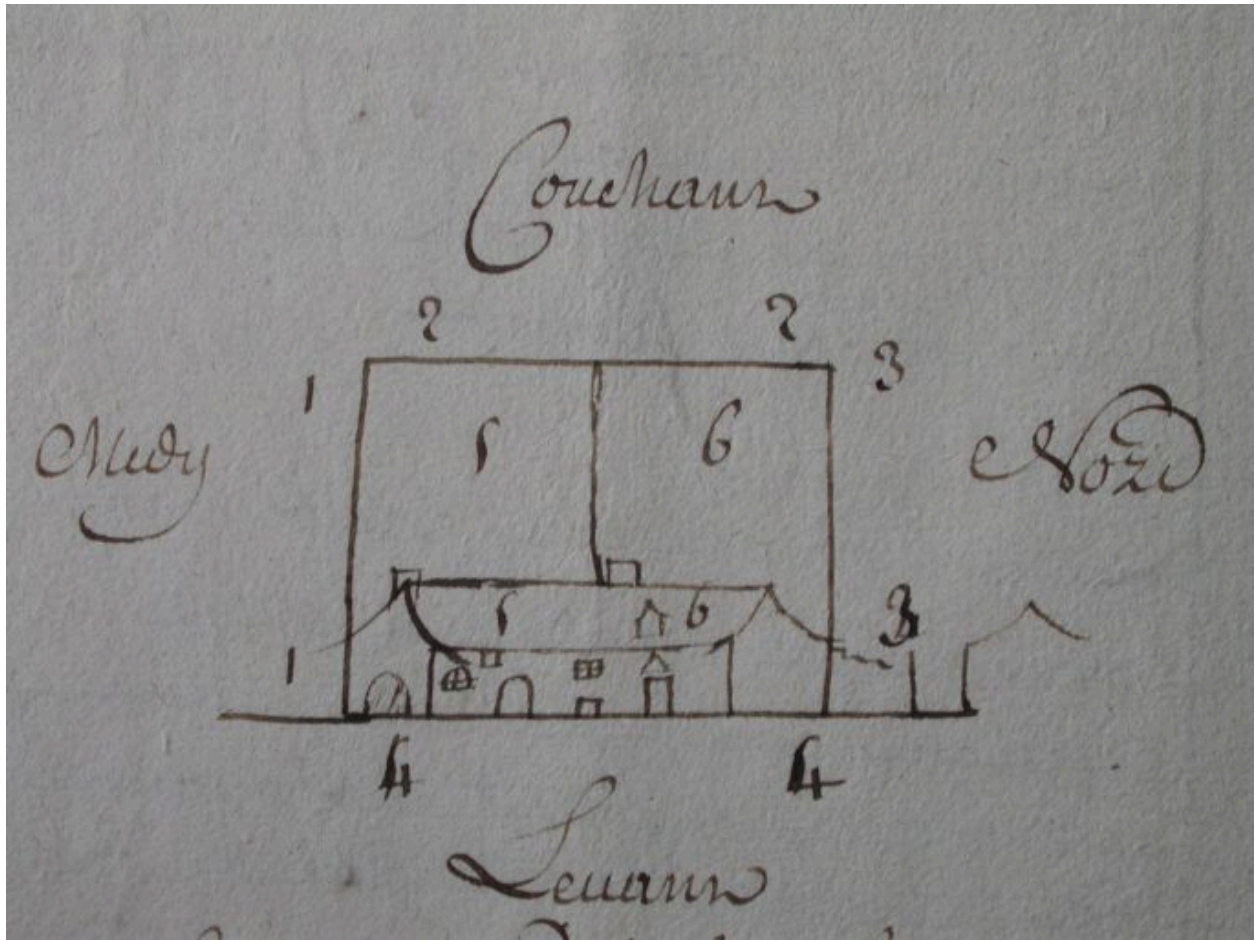 Couchant
2 2
1 3
Midy Nord
5 6
5 6
1 3
4 4
Levant